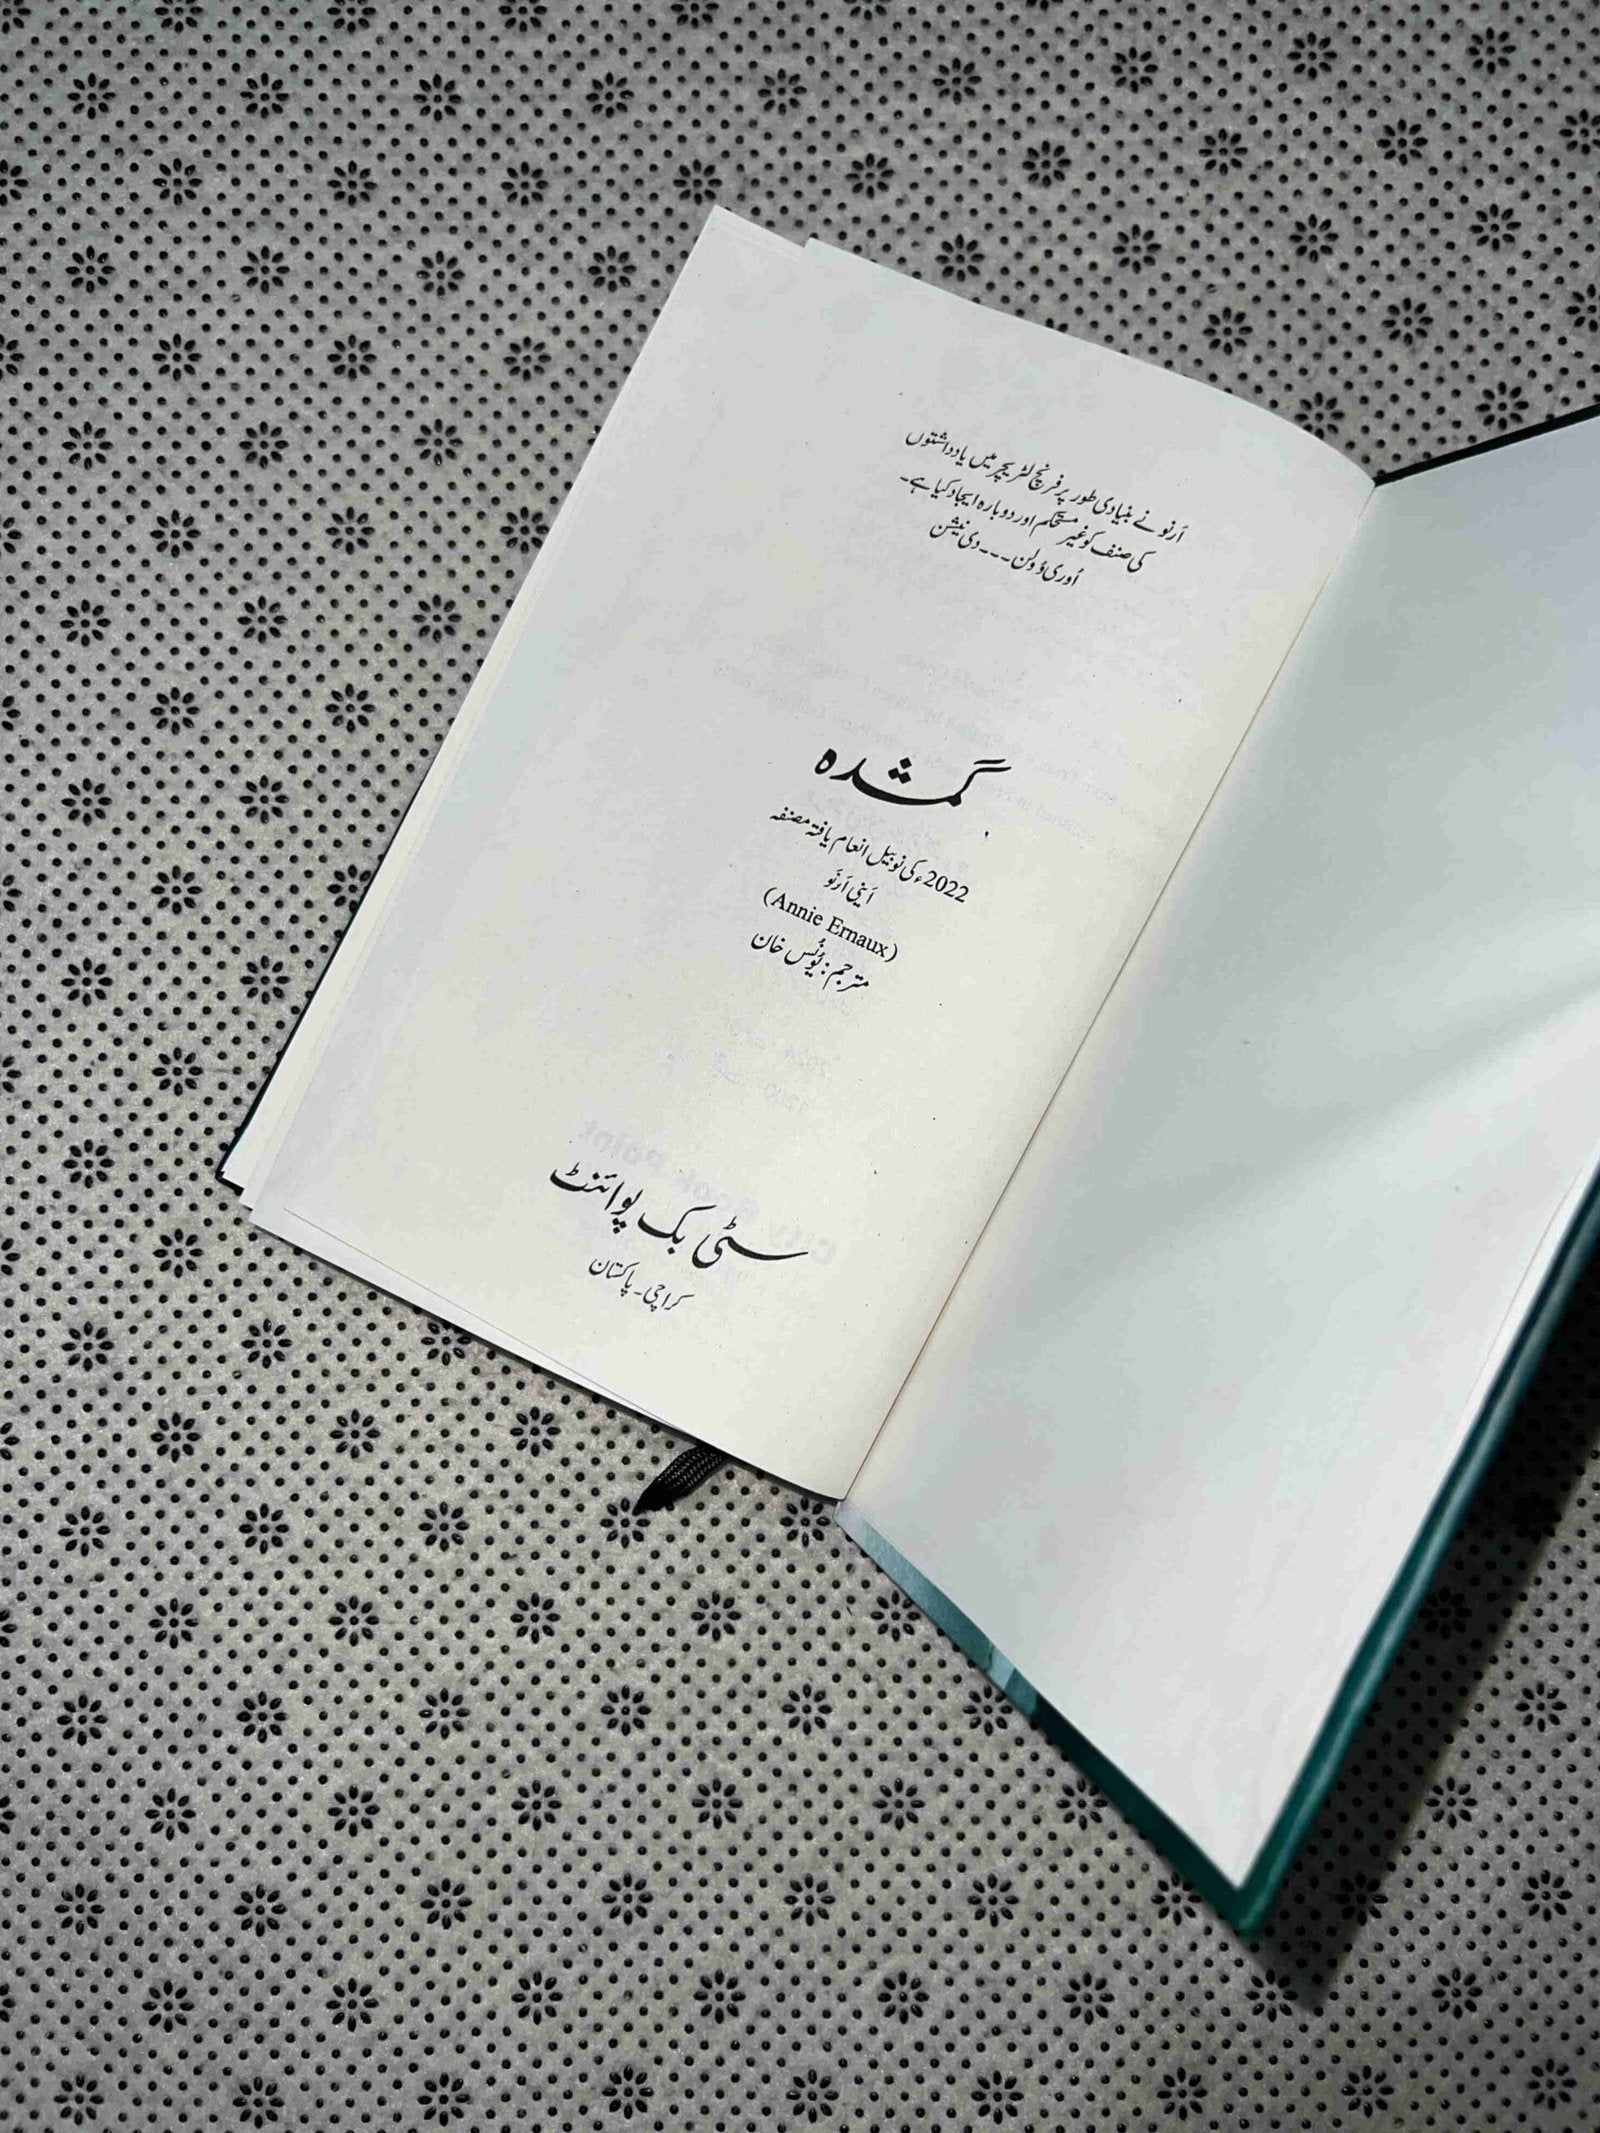 اَرنو نے بنیادی طور پر فرنچ لٹریچر میں یادداشتوں
کی صنف کو غیر مستحکم اور دوبارہ ایجاد کیا ہے۔
اُوری وُولن ۔۔۔ دی نیشن
گمشدہ
2022ء کی نوبیل انعام یافتہ مصنفہ
اَینی اَرنَو
(Annie Ernaux)
مترجم: یُونُس خان
سٹی بک پوائنٹ
کراچی۔ پاکستان